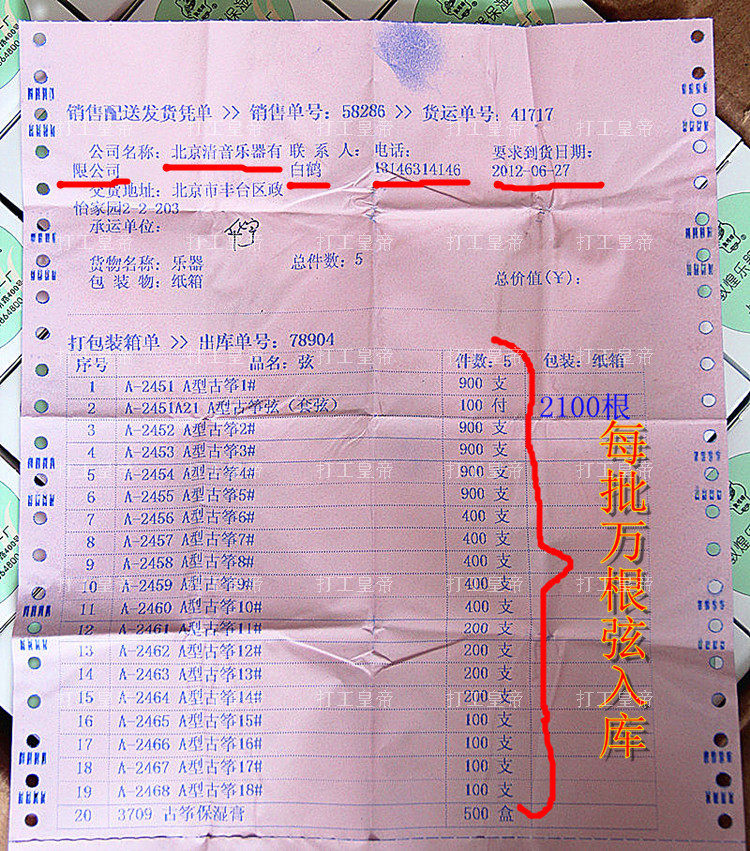 销售配送发货凭单 >> 销售单号: 58286 >> 货运单号: 41717
公司名称: 北京清音乐器有限公司
联 系 人: 白鹤
电话: 13146314146
要求到货日期: 2012-06-27
交货地址: 北京市丰台区政怡家园2-2-203
承运单位:
货物名称: 乐器
总件数: 5
包 装 物: 纸箱
总价值(￥):
打包装箱单 >> 出库单号: 78904
序号 品名: 弦 件数: 5 包装: 纸箱
1 A-2451 A型古筝1# 900 支
2 A-2451A21 A型古筝弦 (套弦) 100 付 2100根
3 A-2452 A型古筝2# 900 支
4 A-2453 A型古筝3# 900 支
5 A-2454 A型古筝4# 900 支
6 A-2455 A型古筝5# 900 支
7 A-2456 A型古筝6# 400 支
8 A-2457 A型古筝7# 400 支
9 A-2458 A型古筝8# 400 支
10 A-2459 A型古筝9# 400 支
11 A-2460 A型古筝10# 400 支
12 A-2461 A型古筝11# 200 支
13 A-2462 A型古筝12# 200 支
14 A-2463 A型古筝13# 200 支
15 A-2464 A型古筝14# 200 支
16 A-2465 A型古筝15# 100 支
17 A-2466 A型古筝16# 100 支
18 A-2467 A型古筝17# 100 支
19 A-2468 A型古筝18# 100 支
20 3709 古筝保湿膏 500 盒
每批万根弦入库
打工皇帝